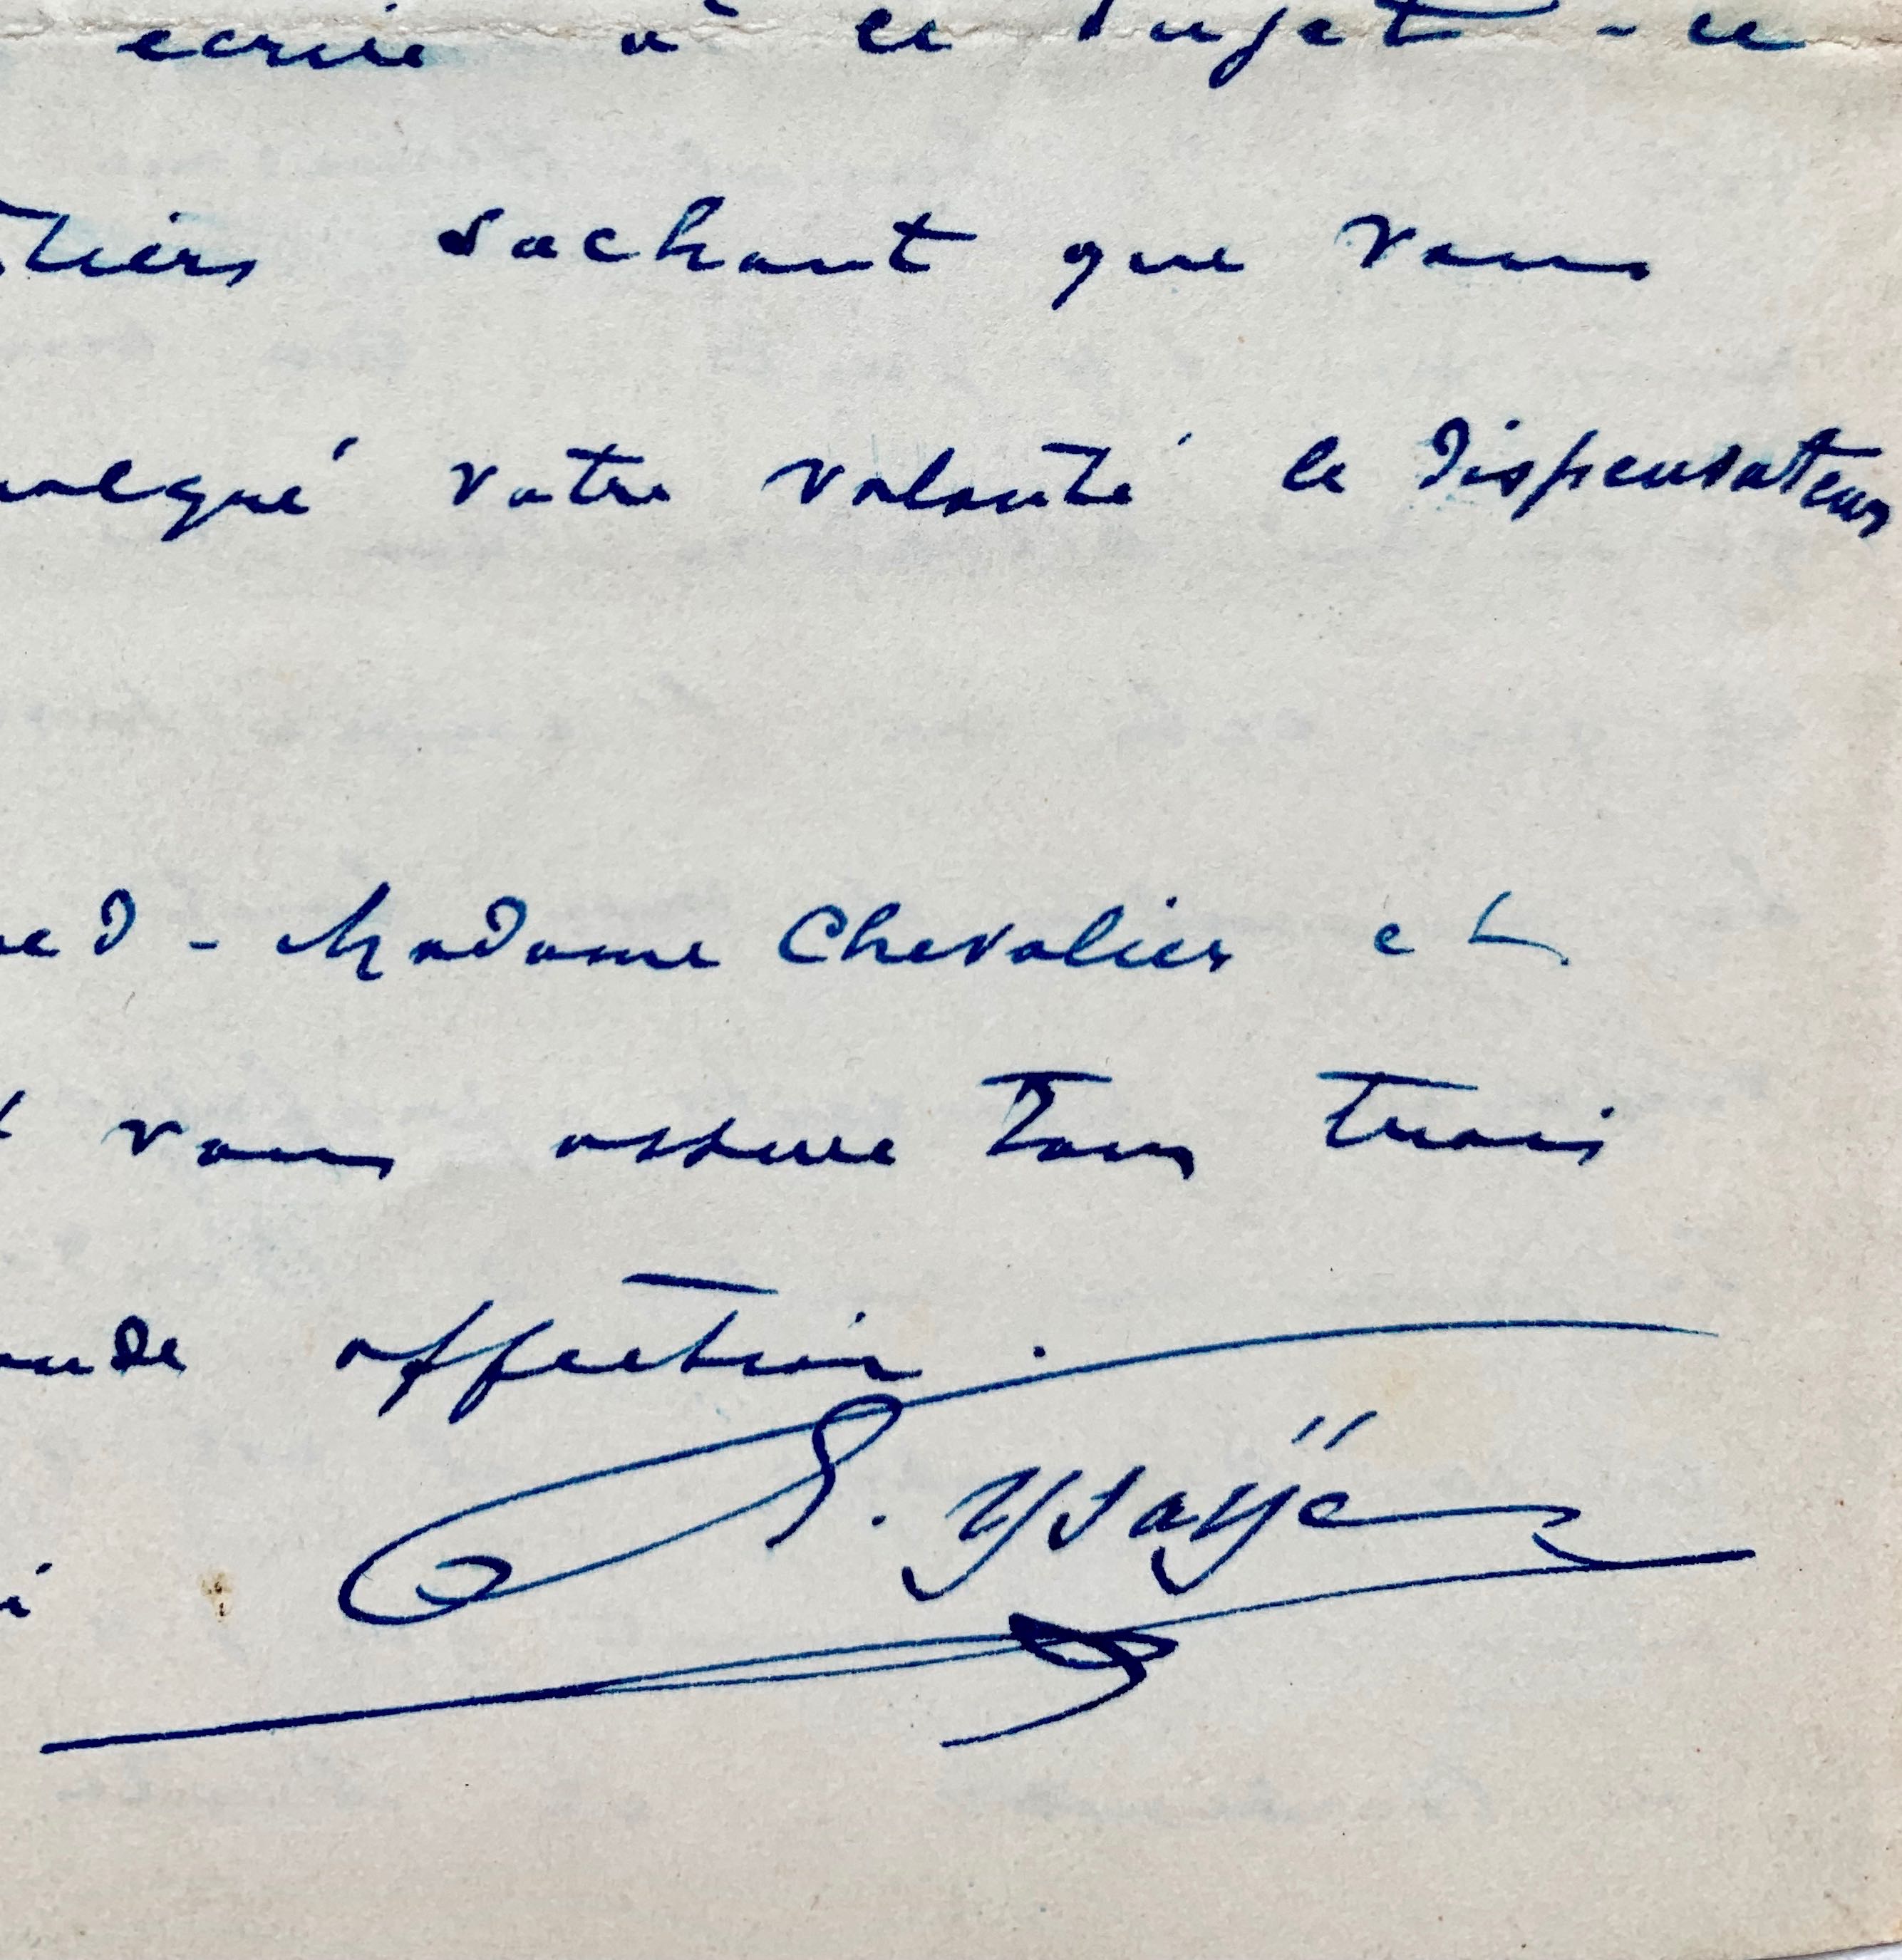 écrire à ce sujet - ce
sachant que vous
malgré votre volonté le Dispensateur
Madame Chevalier et
vous assure tous trois
affection.
E. Ysaÿe